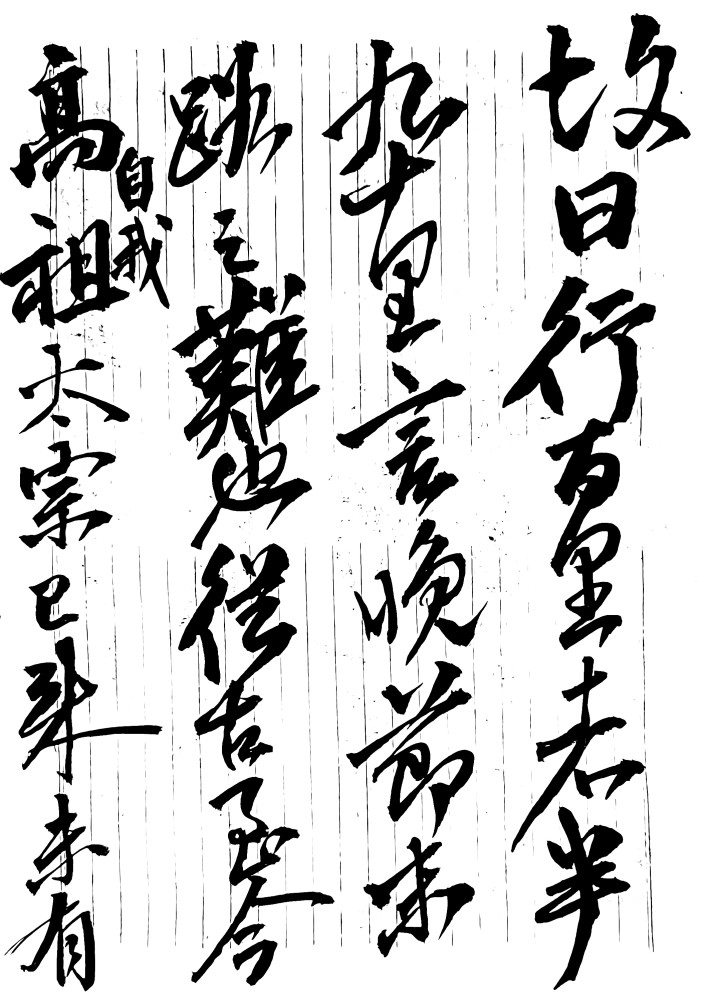 故曰行百里者半
九十里言晚節末
路之難也從古至今
自我
高祖太宗已來未有